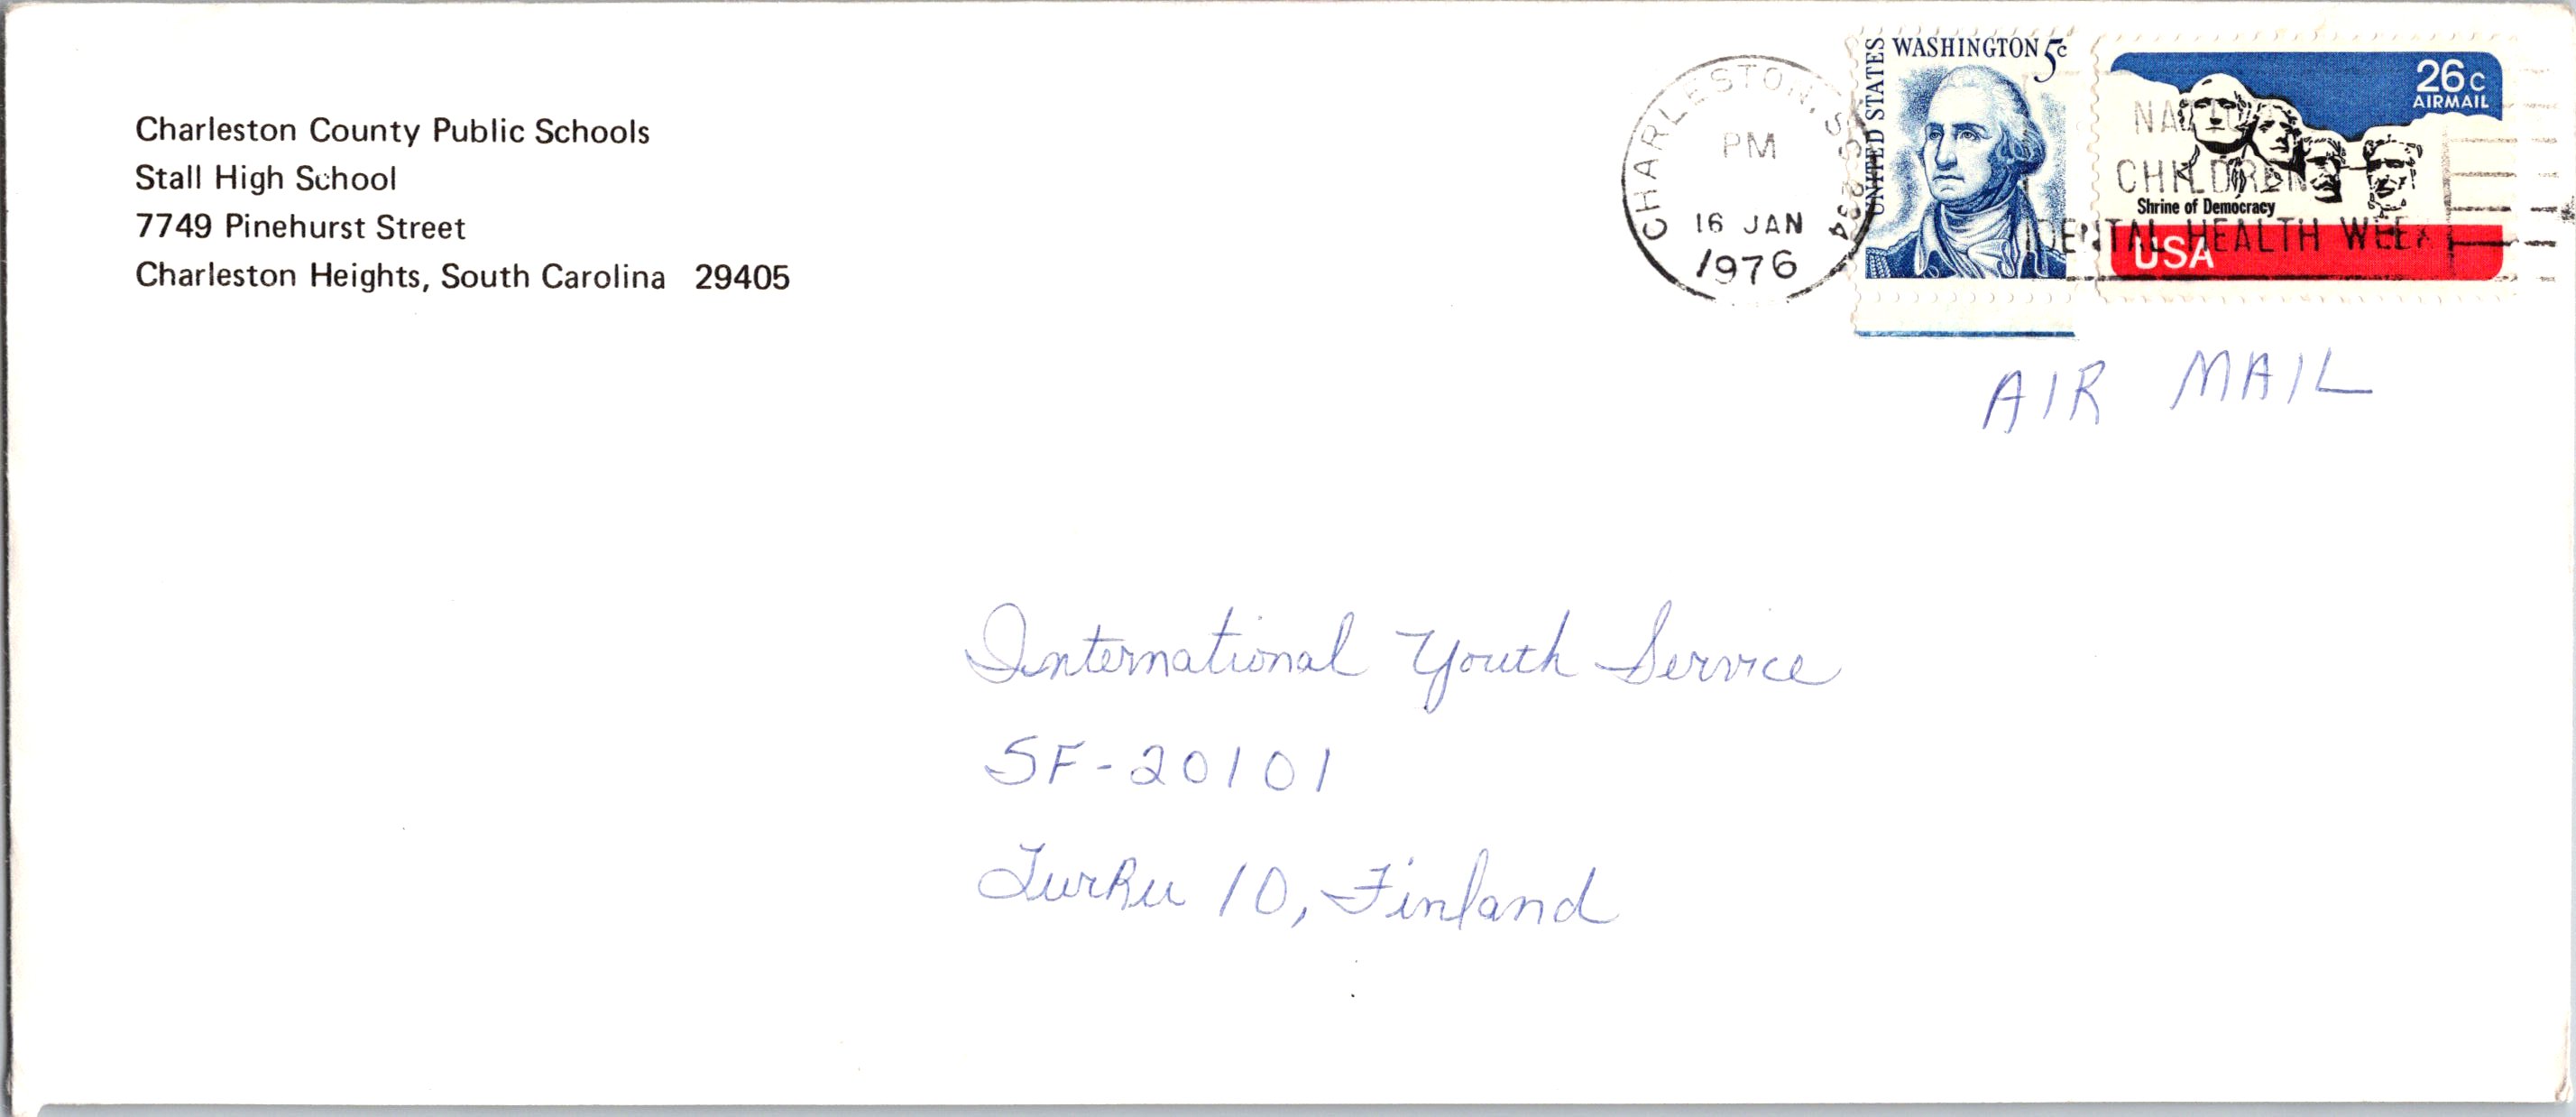 Charleston County Public Schools
Stall High School
7749 Pinehurst Street
Charleston Heights, South Carolina 29405
CHARLESTON, SC 294
PM
16 JAN
1976
UNITED STATES
WASHINGTON 5c
26c
AIRMAIL
Shrine of Democracy
USA
CHILDREN
DENTAL HEALTH WEEK
AIR MAIL
International Youth Service
SF-20101
Turku 10, Finland